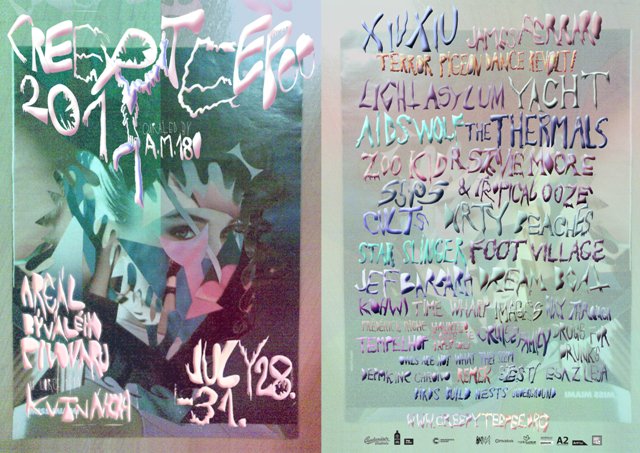 CREEPY TEEPEE
2011
CURATED BY
A.M.180
AREÁL
BÝVALÉHO
PIVOVARU
KUTNÁ HORA
JULY 28.
–31.
XIU XIU JAMES FERRARO
TERROR PIGEON DANCE REVOLT!
LIGHT ASYLUM YACHT
AIDS WOLF THE THERMALS
ZOO KID R STEVIE MOORE
SSPS & TROPICAL OOZE
CULTS DIRTY BEACHES
STAR SLINGER FOOT VILLAGE
JEFF BARBARA DREAM BOAT
KUHWI TIME WHARP IMAGES
TEMPELHOF FAMILY DRUGS FOR
OWLS ARE NOT WHAT THEY SEEM DRUNKS
CHRONO REMEK
BIRDS BUILD NESTS UNDERGROUND
MISS MIAMI
WWW.CREEPYTEEPEE.ORG
A2